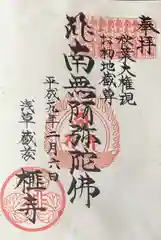 奉拝
秋葉大権現
お初地蔵尊
南無阿弥陀佛
平成九年二月六日
浅草 蔵前
榧寺